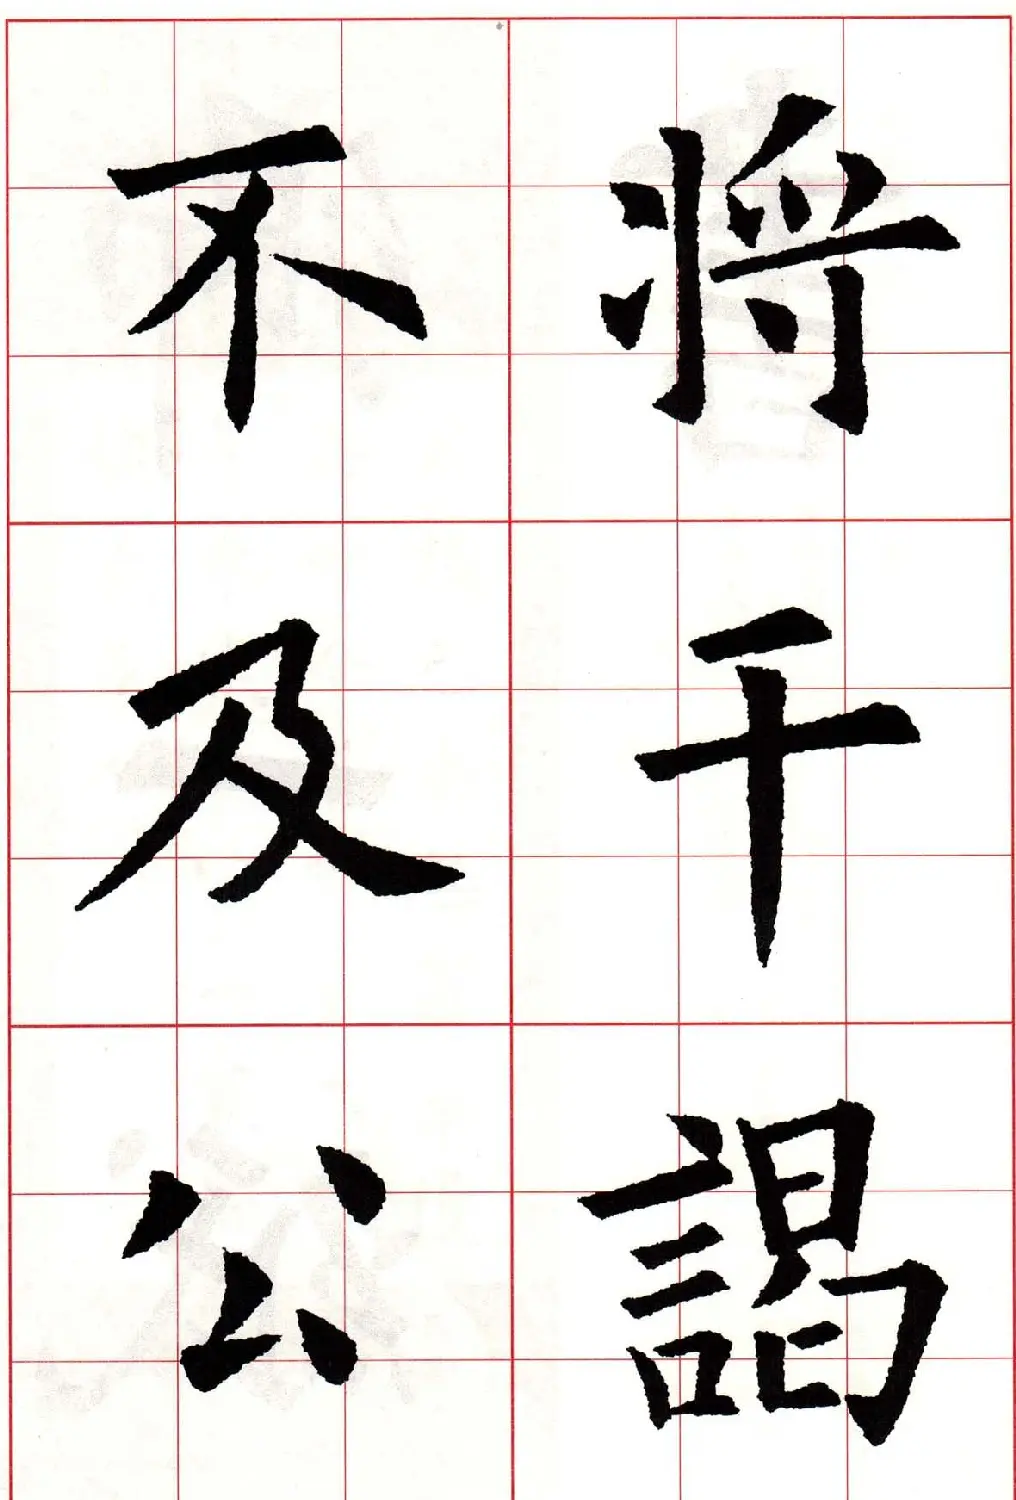 将干謁
不及公